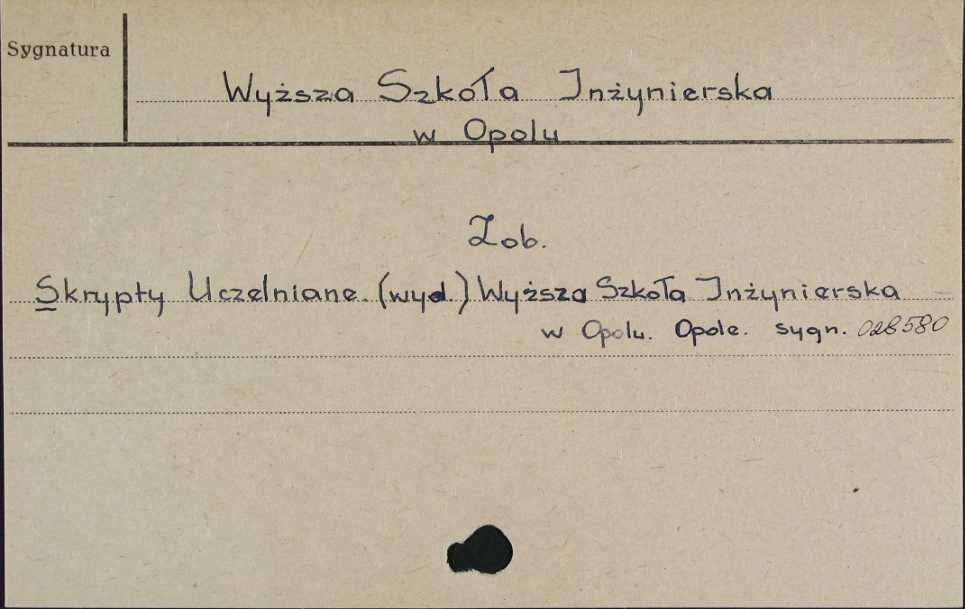 Sygnatura
Wyższa Szkoła Inżynierska
w Opolu
Zob.
Skrypty Uczelniane. (wyd.) Wyższa Szkoła Inżynierska
w Opolu. Opole. sygn. 028580